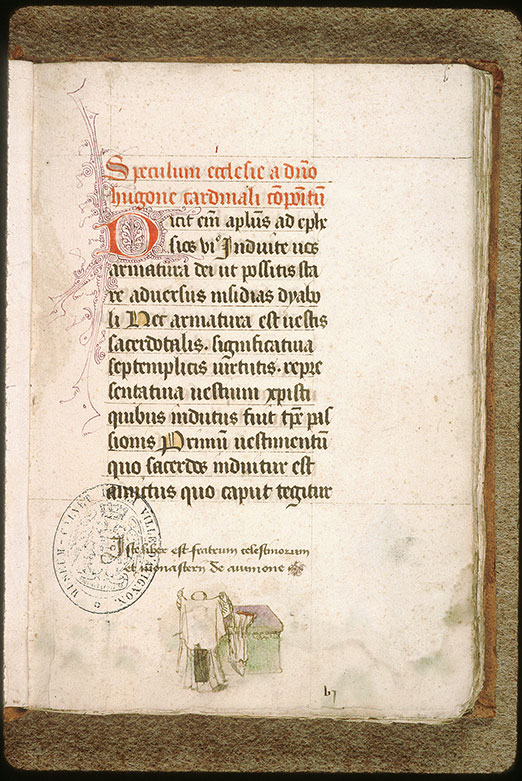 Speculum ecclesie a dño
hugone cardinali cõpoĩtũ
Dicit em̃ aplũs ad ephe
sios vi° Induite uos
armatura dei ut possitis sta
re aduersus insidias dyabo
li Hec armatura est uestis
sacerdotalis. significatiua
septemplicis uirtutis. repre
sentatiua uestium xpisti
quibus indutus fuit tp̃e pas
sionis Primũ uestimentũ
quo sacerdos induitur est
amictus quo caput tegitur
Iste liber est fratrum celestinorum
et monasterii de auinione
MUSEUM CALVET VILLE AVIGNON
b1